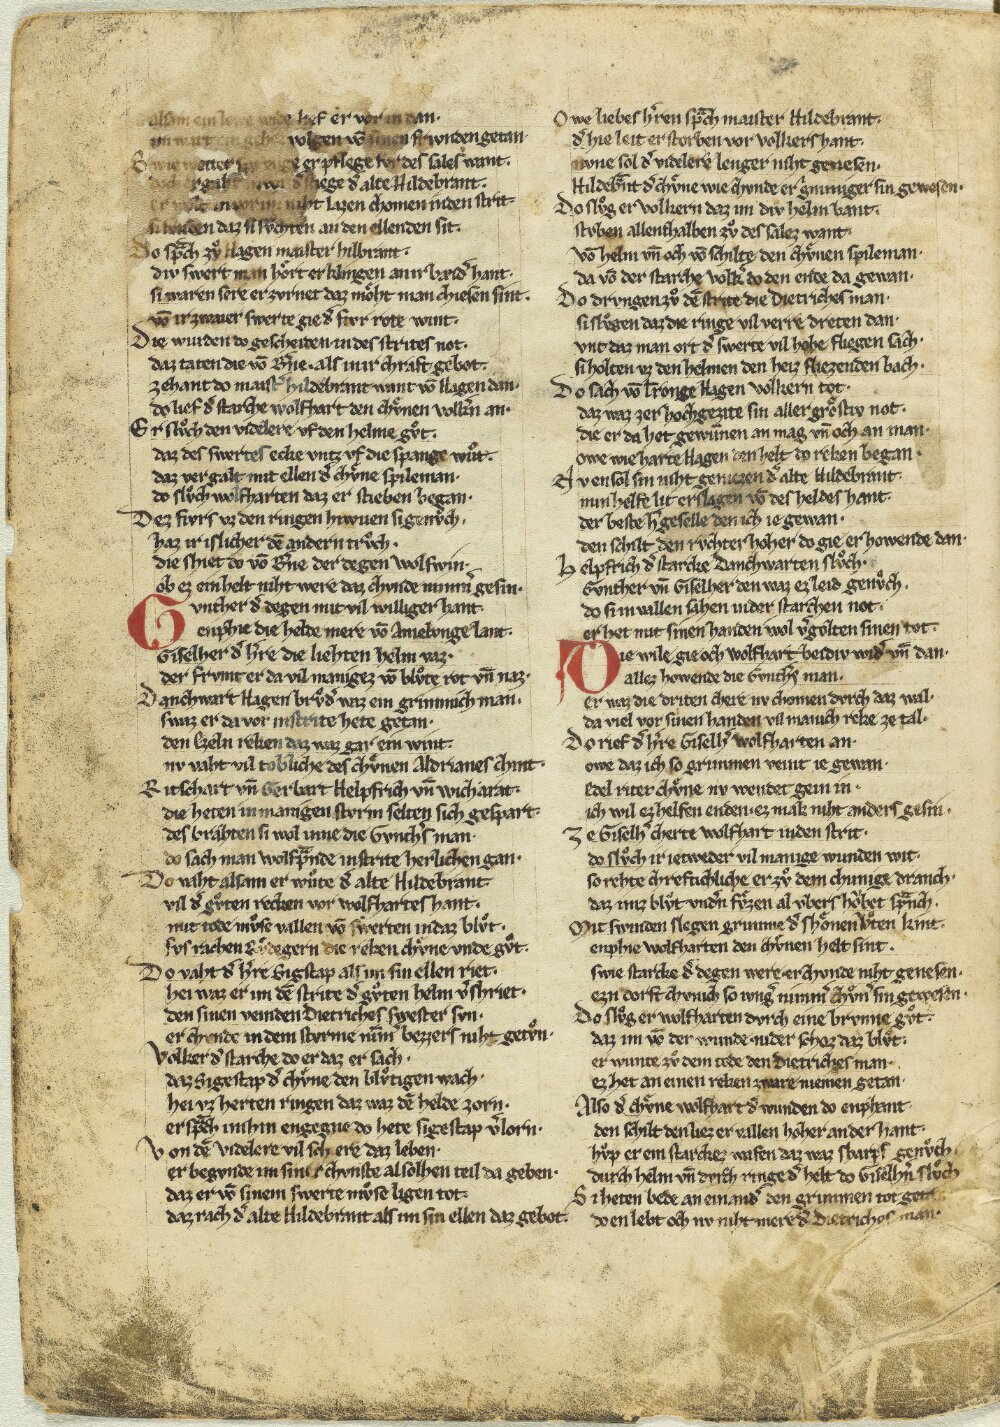 alsam ein lewe wilde lief er vor in dan.
im wart ein gehes volgen vō sinen frivnden getan
Swie witter spru͂nge er pflege fvr des sales want.
doch ergaht in vor d̕ stiege d̕ alte Hildebrant.
er wolt in vor im niht lazen chomen in den strit.
si funden daz si svͦchten an den ellenden sit.
Do sprāch zvͦ Hagen maister hilbrant.
div swert man hört erklingen an ir baid̕ hant.
si waren sere erzvrnet daz möht man chiesen sint.
vō ir zwaier swerte gie d̕ fivr rote wint.
Die wurden do gescheiden in des strites not.
daz taten die vō B̕ne. als in ir chraft gebot.
zehant do maist̕ hildebrant want vō Hagen dan.
do lief d̕ starche wolfhart den chvͤnen volk̕n an.
Er slvͦch den videlere vf den helme gvͦt.
daz des swertes ecke vntz vf die spange wuͦt.
daz vergalt mit ellen d̕ chvͤne spileman.
do slvͦch wolfharten daz er stieben began.
Dez fivrs vz den ringen hiwuen si genvͦch.
haz ir islicher dē andern trvͦch.
die shiet do vō B̕ne der degen wolfwin.
ob ez ein helt niht were daz chvnde nimm̕ gesin.
Gvnther d̕ degen mit vil williger hant.
enphie die helde mere vō Amelvnge lant.
Giselher d̕ h̕re die liehten helm vaz.
der frvmt er da vil manigez vō blvͦte rot vn̄ naz.
Danchwart Hagen brvͦd̕ waz ein grimmich man.
swaz er da vor in strite hete getan.
den Ezeln reken daz waz gar ein wint.
nv vaht vil tobliche des chvͤnen Aldrianes chint.
Ritschart vn̄ Gerbart Helpfrich vn̄ wichart.
die heten in manigen stvrm selten sich gespart.
des brahten si wol inne die Gvnth̕s man.
do sach man wolfprānde in strite herlichen gan.
Do vaht alsam er wuͤte d̕ alte Hildebrant.
vil d̕ gvͦten recken vor wolfhartes hant.
mit tode mvͦse vallen vō swerten in daz blvͦt.
svs rachen Rvͦdegern die reken chvͤne vnde gvͦt.
Do vaht d̕ h̕re Sigstap als im sin ellen riet.
hei waz er im dē strite d̕ gvͦten helm v̕shriet.
den sinen veinden Dietriches swester svn.
er chvnde in dem stvrme nim̄ bezzers niht getvͦn.
Volker d̕ starche do er daz er sach.
daz Sigestap d̕ chvͤne den blvͦtigen bach.
hei vz herten ringen daz waz dē helde zorn.
er sprāch im hin engegne do hete sigestap v̕lorn.
Von dē Videlere vil schiere daz leben.
er begvnde im siner chvnste al solhen teil da geben.
daz er vō sinem swerte mvͦse ligen tot.
daz rach d̕ alte Hildebrant als im sin ellen daz gebot.
Owe liebes h̕ren sprāch maister Hildebrant.
d̕ hie leit erstorben vor volkers hant.
nvne sol d̕ videlere lenger niht genesen.
Hildeb̕nt d̕ chvͤne wie chvnde er grimmiger sin gewesen.
Do slvͦg er volkern daz im div helm bant.
stvben allenthalben zvͦ des salez want.
vō helm vn̄ och vō schilte den chvͤnen spileman.
da vō der starche volk̕ do den ende da gewan.
Do drvngen zvͦ dē strite die Dietriches man.
si slvͦgen daz die ringe vil verre dreten dan.
vnt daz man ort d̕ swerte vil hohe fliegen sach.
si holten vz den helmen den heiz fliezenden bach.
Do sach vō Tronge Hagen volkern tot.
daz waz zer hochgezite sin aller groͤstiv not.
die er da het gewun̄en an mag vn̄ och an man.
owe wie harte Hagen den helt do reken began.
Nv en sol sin niht geniezen d̕ alte Hildebrant.
min helfe lit erslagen vō des heldes hant.
der beste h̕geselle den ich ie gewan.
den schilt den rvchter hoher do gie er howende dan.
Helpfrich d̕ starcke Danchwarten slvͦch.
Gvnther vn̄ Giselher den waz ez leid genvͦch.
do si in vallen sahen in der starchen not.
er het mit sinen handen wol v̕golten sinen tot.
Die wile gie och wolfhart beidiv wid̕ vn̄ dan.
allez howende die Gvnth̕s man.
er waz die driten chere nv chomen dvrch daz wal.
da viel vor sinen handen vil manich reke ze tal.
Do rief d̕ h̕re Giselh̕ wolfharten an.
owe daz ich so grimmen veint ie gewan.
Edel riter chvͤne nv wendet gein in.
ich wil ez helfen enden. ez mak niht anders gesin.
Ze Giselh̕ cherte wolfhart in den strit.
do slvͦch ir ietweder vil manige wunden wit.
so rehte chreftichliche er zvͦ dem chunige dranch.
daz imz blvͦt vnd̕n fvͤzen al vbers höbet sprāch.
Mit swinden slegen grimme d̕ shönen Vͦten kint.
enphie wolfharten den chvͤnen helt sint.
swie starcke d̕ degen were. er chvnde niht genesen.
ezn dorft chvnich so ivng̕ nimm̕ chvͤn̕ sin gewesen.
Do slvͦg er wolfharten dvrch eine brvnne gvͦt.
daz im vō der wunde. nider schoz daz blvͦt.
er wunte zvͦ dem tode den Dietriches man.
ez het an einen reken zware niemen getan.
Also d̕ chvͤne wolfhart d̕ wunden do enphant.
den schilt den liez er vallen hoher an der hant.
hvͦp er ein starckez wafen daz waz sharpf genvͦch.
durch helm vn̄ dvrch ringe d̕ helt do Giselh̕n slvͦch
Si heten bede an einand̕ den grimmen tot getan
do en lebt och nv niht mere d̕ Dietriches man.